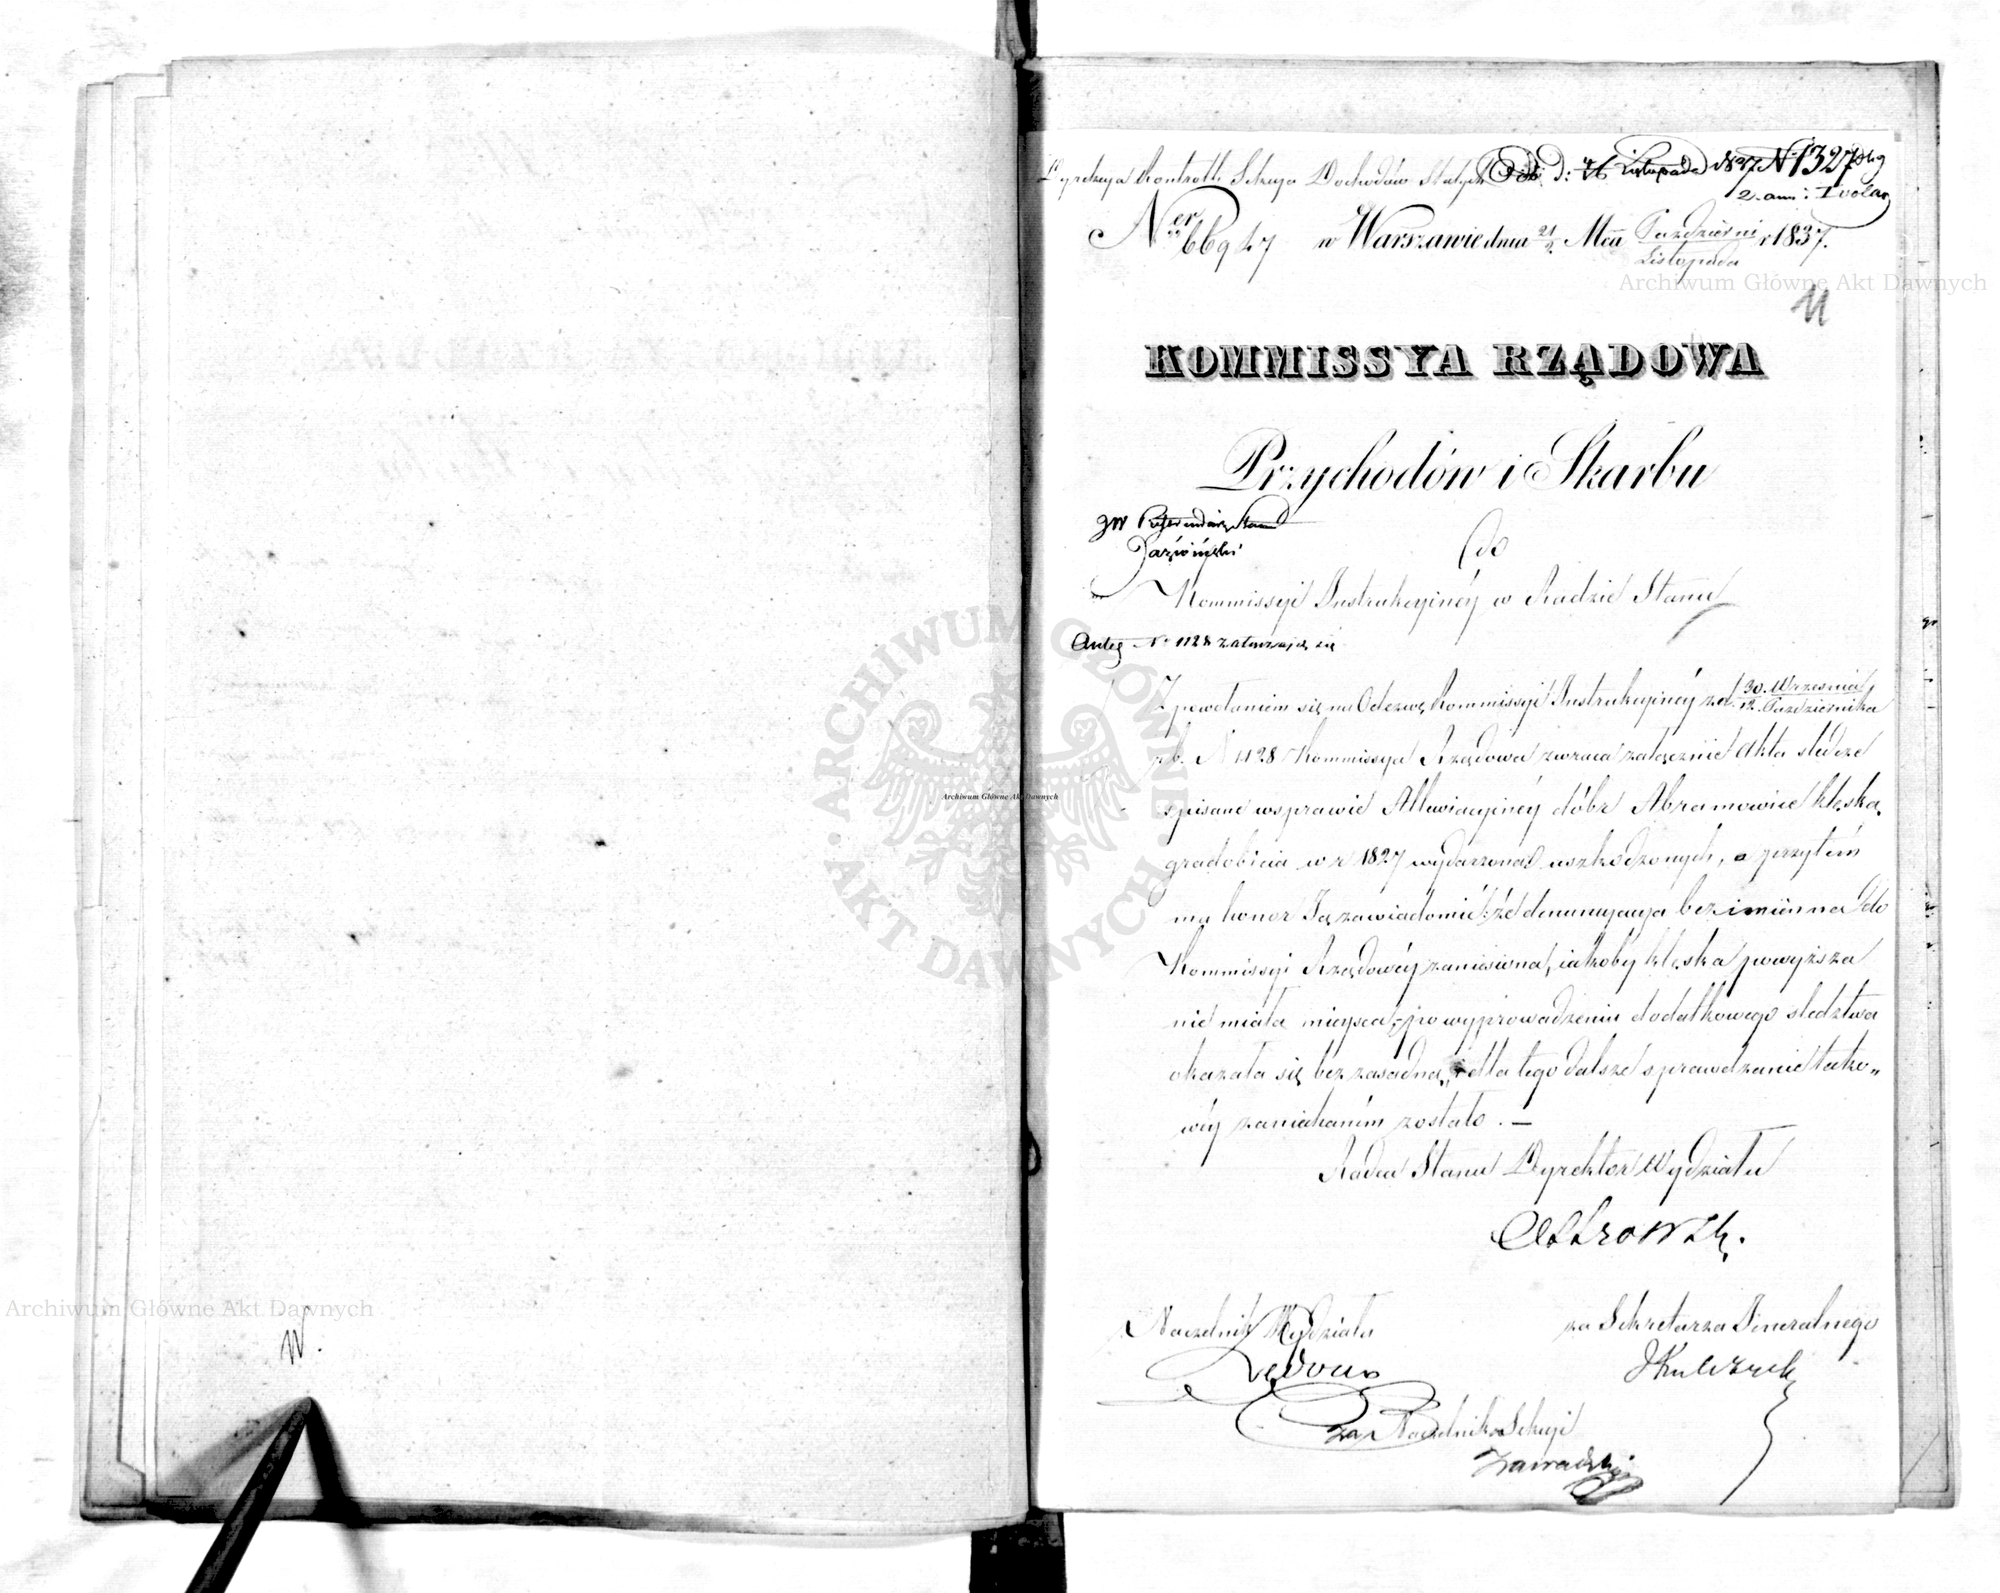 Dyrekcya Kontrolli Sekcya Dochodów Stałych
d: Listopada 1837 N 1327
2. ann: 1 volum
Ner 66927 w Warszawie dnia 21/2 Mca Październi/Listopada r 1837.
Archiwum Główne Akt Dawnych
11
KOMMISSYA RZĄDOWA
Przychodów i Skarbu
JW Referendarz Stanu
do
Kommissyi Instrukcyinéy w Radzie Stanu
Anteq N 1128 załączaią się
Z powołaniem się na Odezwę Kommissyi Instrukcyinéy z d. 30. Września/12. Października
r b. N 1128 Kommissya Rządowa zwraca załącznie Akta śledcze
spisane w sprawie Allewiacyinéy dóbr Abramowice klęską
gradobicia w r 1827 wydarzoną uszkodzonych, a przytém
ma honor Ją zawiadomić: że denuncyacya bezimienna do
Kommissyi Rządowéy zaniesiona, iakoby klęska powyższa
nie miała mieysca, po wyprowadzeniu dodatkowego śledztwa
okazała się bezzasadną, i dla tego dalsze sprawdzanie tako„
wéy zaniechaném zostało. —
Radca Stanu Dyrektor Wydziału
Ostrowsk.
Naczelnik Wydziału
za Sekretarza Generalnego
za Naczelnika Sekcyi
Zawadzki
Archiwum Główne Akt Dawnych
ARCHIWUM GŁÓWNE AKT DAWNYCH
Archiwum Główne Akt Dawnych